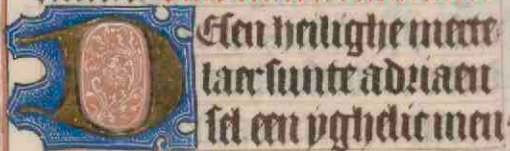 DEsen heilighe merte
laer sunte adriaen
sel een yghelic men